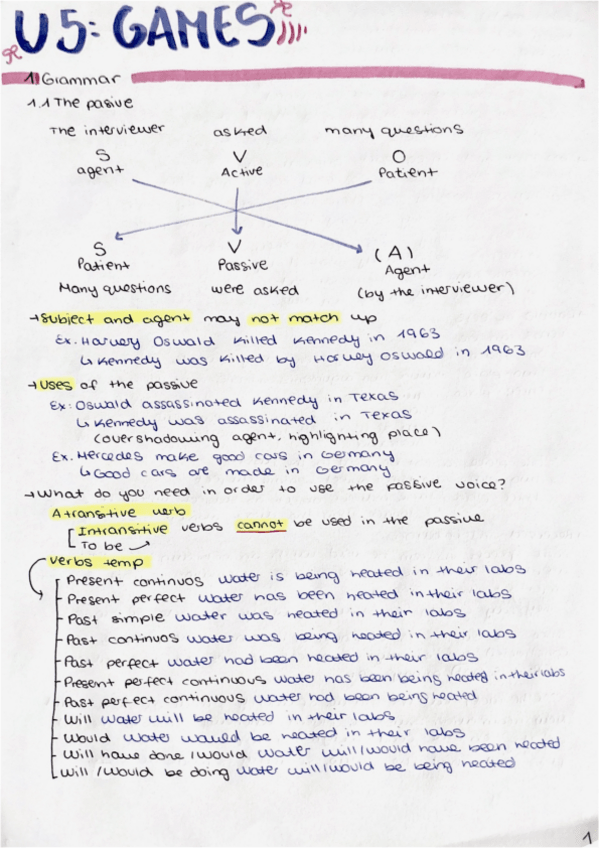 U5: GAMES
1) Grammar
1.1 The pasive
The interviewer asked many questions
S V O
agent Active Patient
S V (A)
Patient Passive Agent
Many questions were asked (by the interviewer)
→ Subject and agent may not match up
Ex. Harvey Oswald killed Kennedy in 1963
↳ Kennedy was killed by Harvey Oswald in 1963
→ Uses of the passive
Ex: Oswald assassinated Kennedy in Texas
↳ Kennedy was assassinated in Texas
(overshadowing agent, highlighting place)
Ex. Mercedes make good cars in Germany
↳ Good cars are made in Germany
→ What do you need in order to use the passive voice?
A transitive verb
Intransitive verbs cannot be used in the passive
To be
Verbs temp
Present continuos water is being heated in their labs
Present perfect water has been heated in their labs
Past simple water was heated in their labs
Past continuos water was being heated in their labs
Past perfect water had been heated in their labs
Present perfect continuous water has been being heated in their labs
Past perfect continuous water had been being heated
Will water will be heated in their labs
Would water would be heated in their labs
Will have done / would water will/would have been heated
Will / would be doing water will/would be being heated
1